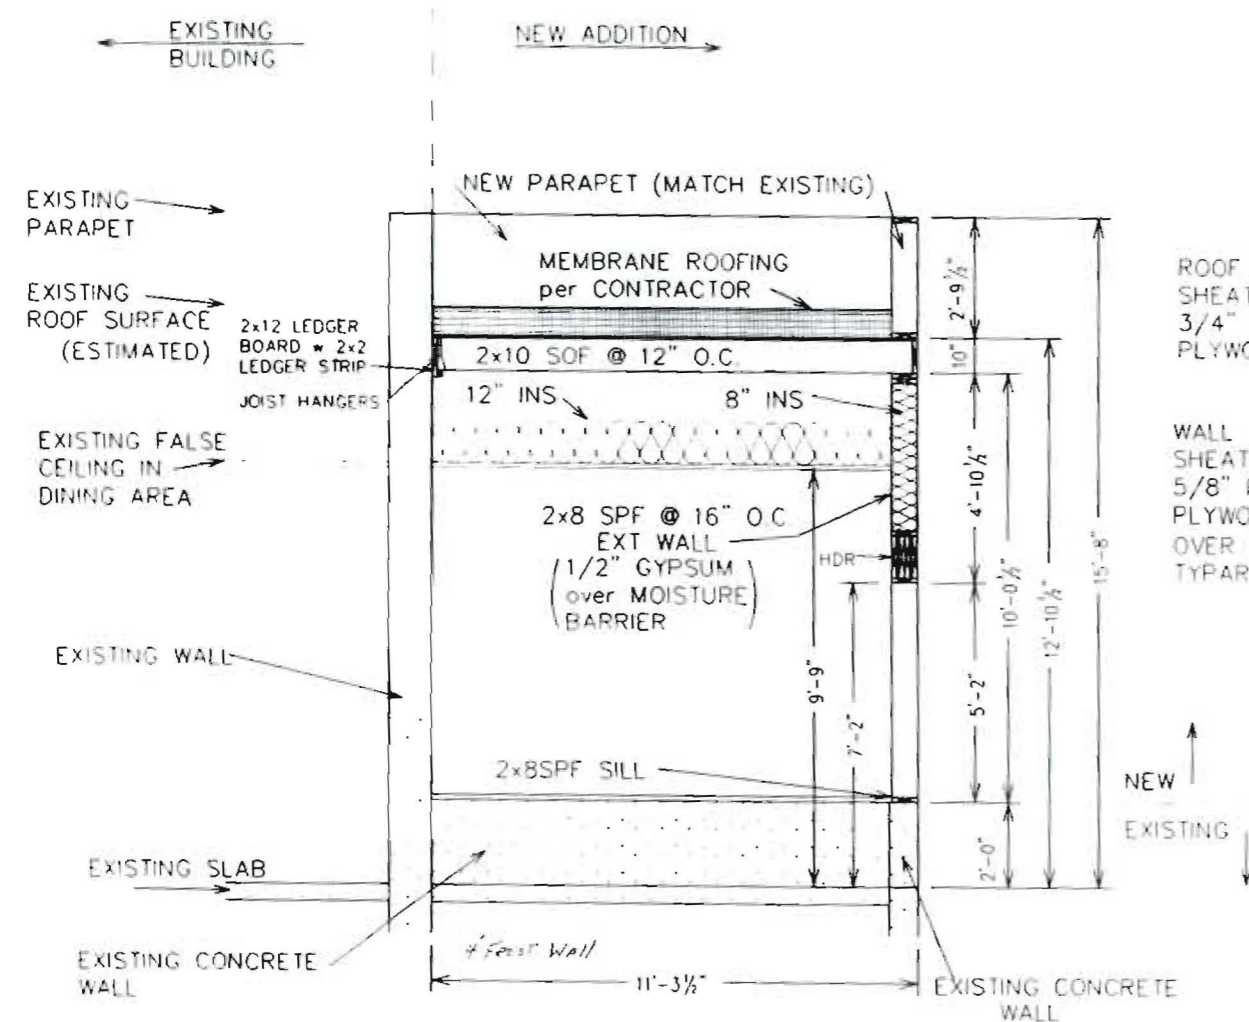 EXISTING
BUILDING
NEW ADDITION
EXISTING
PARAPET
NEW PARAPET (MATCH EXISTING)
MEMBRANE ROOFING
per CONTRACTOR
EXISTING
ROOF SURFACE
(ESTIMATED)
2x12 LEDGER
BOARD w 2x2
LEDGER STRIP
JOIST HANGERS
2x10 SOF @ 12" O.C.
12" INS
8" INS
EXISTING FALSE
CEILING IN
DINING AREA
2x8 SPF @ 16" O.C
EXT WALL
(1/2" GYPSUM
over MOISTURE
BARRIER)
HDR
EXISTING WALL
2x8SPF SILL
EXISTING SLAB
EXISTING CONCRETE
WALL
4' Frost Wall
11'-3½"
EXISTING CONCRETE
WALL
9'-9"
7'-2"
2'-9½"
10"
4'-10½"
5'-2"
2'-0"
10'-0½"
12'-10½"
15'-8"
ROOF
SHEAT
3/4"
PLYWO
WALL
SHEAT
5/8"
PLYWO
OVER
TYPAR
NEW
EXISTING